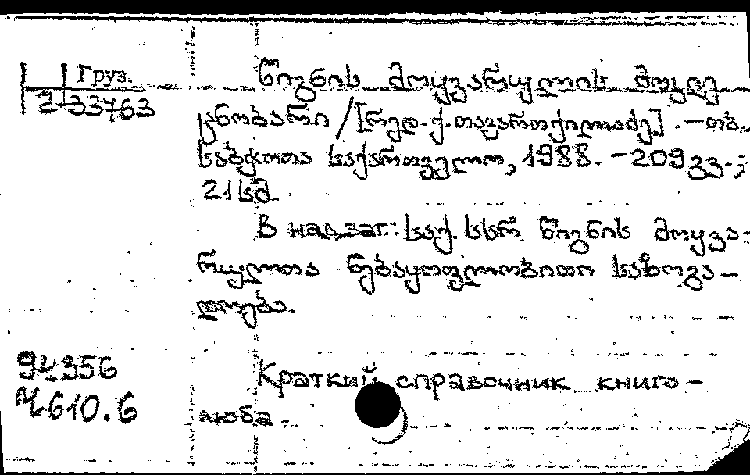 Груз.
2-33763
წიგნის მოყვარულის მოკლე
ცნობარი / [რედ. ქ. თავართქილაძე]. — თბ.
საბჭოთა საქართველო, 1988. — 209 გვ.;
21 სმ.
В надзаг.: საქ. სსრ წიგნის მოყვა-
რულთა ნებაყოფლობითი საზოგა-
დოება.
Краткий справочник книго-
люба.
94356
Ч610.6